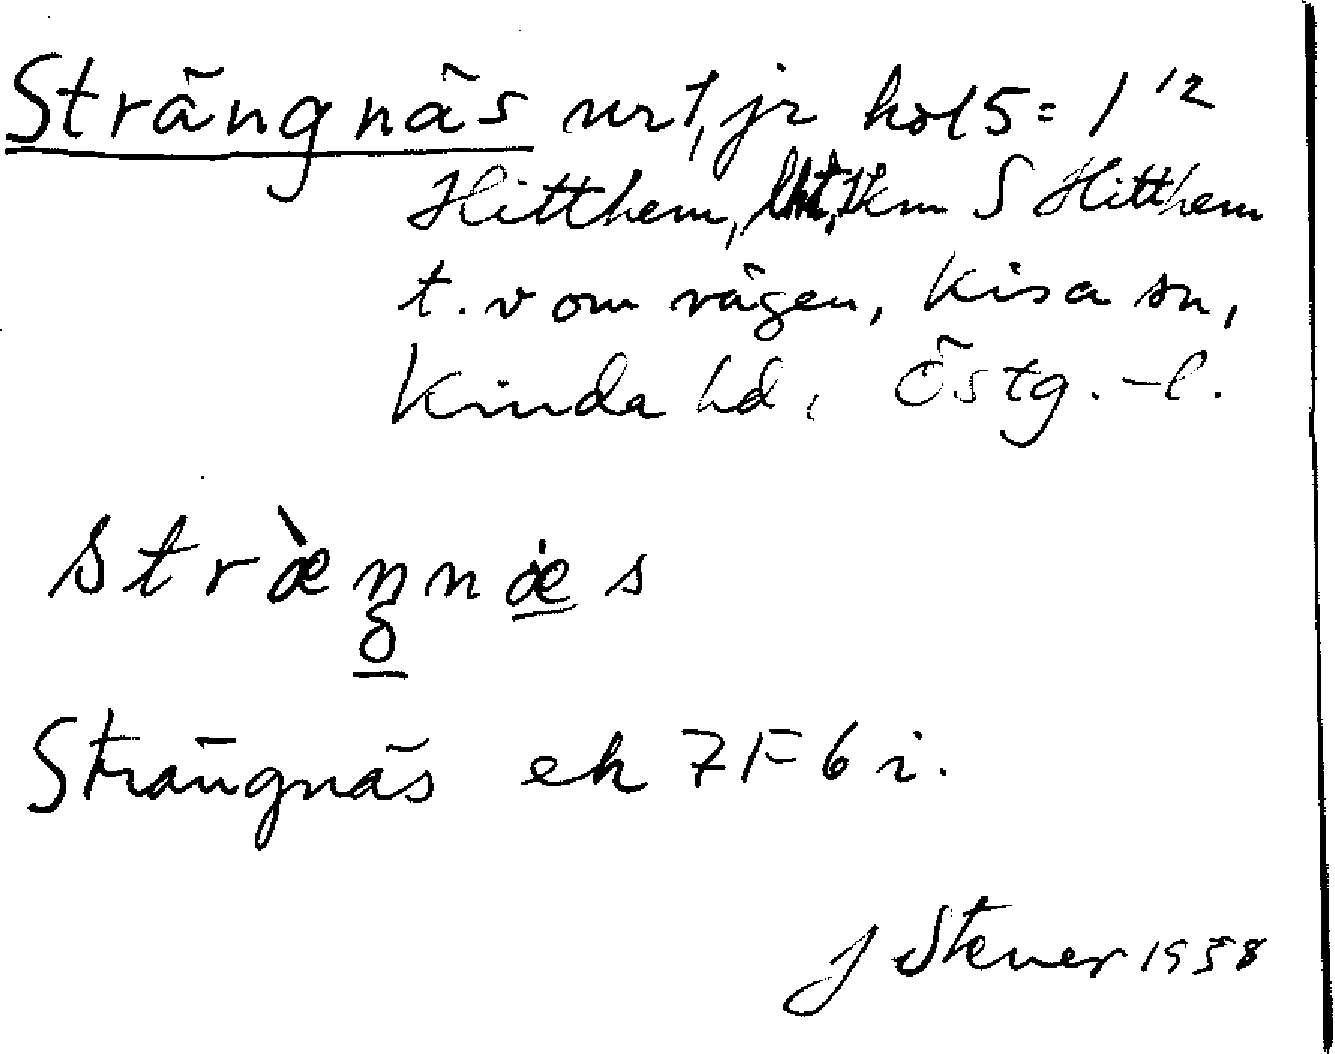 Strängnäs nr 1, jr kol 5 = 1 12
Hitthem, 1 km S Hitthem
t. v om vägen, Kisa sn,
Kinda hd, Östg.-l.
stræ̀ŋnæ̇s
Strängnäs ek 7F6i.
J Stener 1938